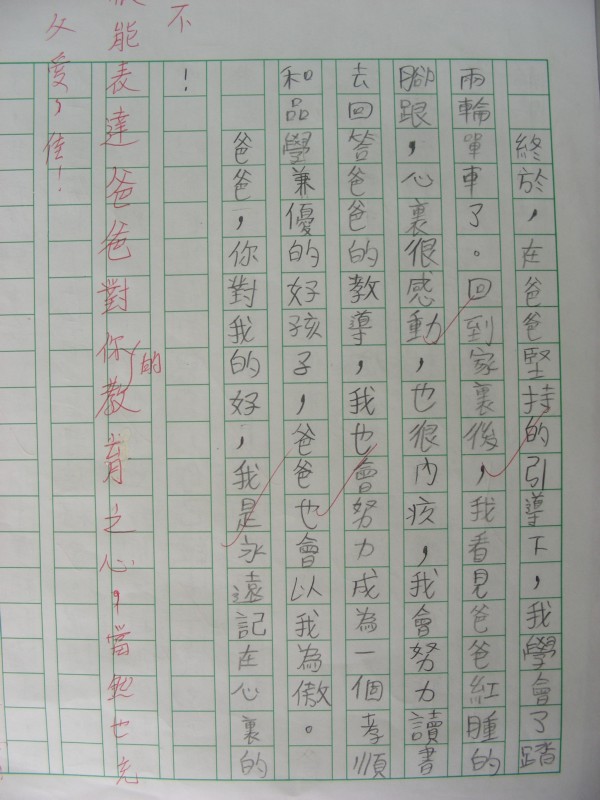 終於，在爸爸堅持的引導下，我學會了踏
兩輪單車了。回到家裏後，我看見爸爸紅腫的
腳跟，心裏很感動，也很內疚，我會努力讀書
去回答爸爸的教導，我也會努力成為一個孝順
和品學兼優的好孩子，爸爸也會以我為傲。
爸爸，你對我的好，我是永遠記在心裏的
！
不
能表達爸爸對你的教育之心，當然也充
父愛，佳！